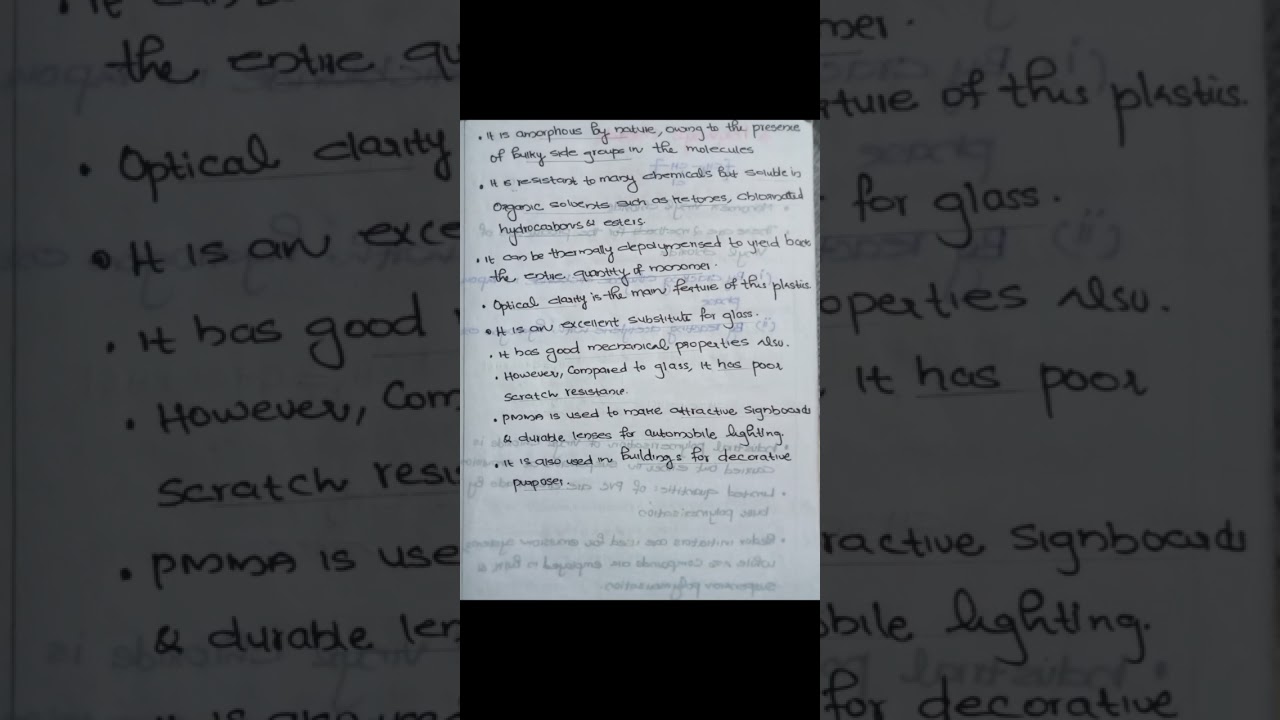 • It is amorphous by nature, owing to the presence
of bulky side groups in the molecules
• It is resistant to many chemicals but soluble in
organic solvents such as ketones, chlorinated
hydrocarbons & esters.
• It can be thermally depolymerised to yield back
the entire quantity of monomer.
• Optical clarity is the main feature of this plastics.
• It is an excellent substitute for glass.
• It has good mechanical properties also.
• However, compared to glass, it has poor
scratch resistance.
• PMMA is used to make attractive signboards
& durable lenses for automobile lighting.
• It is also used in buildings for decorative
purposes.